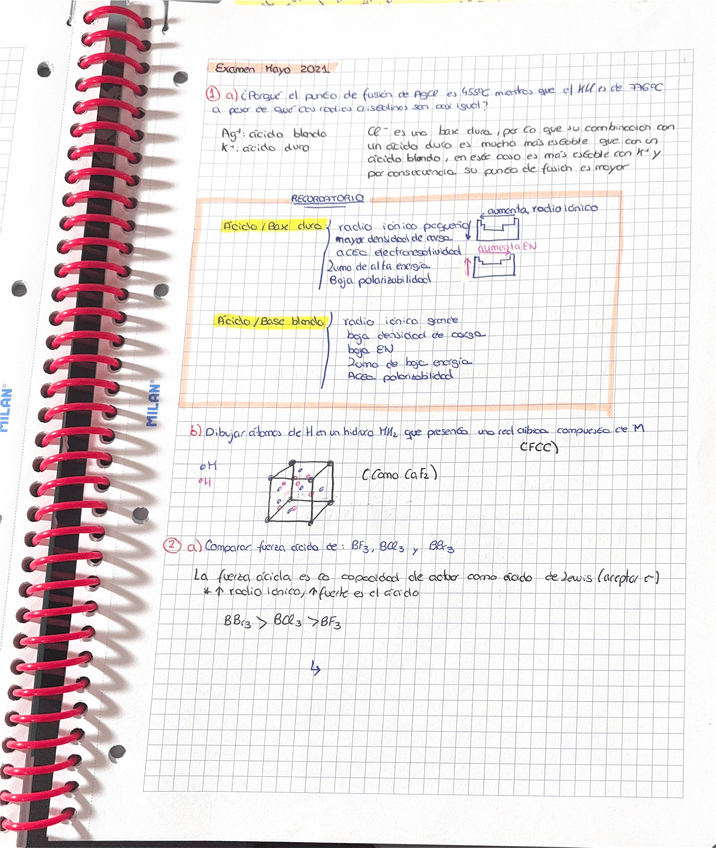 Examen Mayo 2021
① a) ¿Porqué el punto de fusión de AgCl es 455ºC mientras que el KCl es de 776ºC
a pesar de que los radios catiónicos son casi igual?
Ag⁺: ácido blando
K⁺: ácido duro
Cl⁻ es una base dura, por lo que su combinación con
un ácido duro es mucho más estable que con un
ácido blando, en este caso es más estable con K⁺ y
por consecuencia su punto de fusión es mayor
RECORDATORIO
Ácido/Base duro
radio iónico pequeño
mayor densidad de carga
alta electronegatividad
Lumo de alta energía
Baja polarizabilidad
aumenta radio iónico
aumenta EN
Ácido/Base blando
radio iónico grande
baja densidad de carga
baja EN
Lumo de baja energía
Alta polarizabilidad
b) Dibujar átomos de H en un hidruro MH₂ que presenta una red cúbica compuesta de M
(FCC)
H
H
(Como CaF₂)
② a) Comparar fuerza ácida de: BF₃, BCl₃ y BBr₃
La fuerza ácida es la capacidad de actuar como ácido de Lewis (aceptar e⁻)
* ↑ radio iónico, ↑ fuerte es el ácido
BBr₃ > BCl₃ > BF₃
↳
MILAN
MILAN